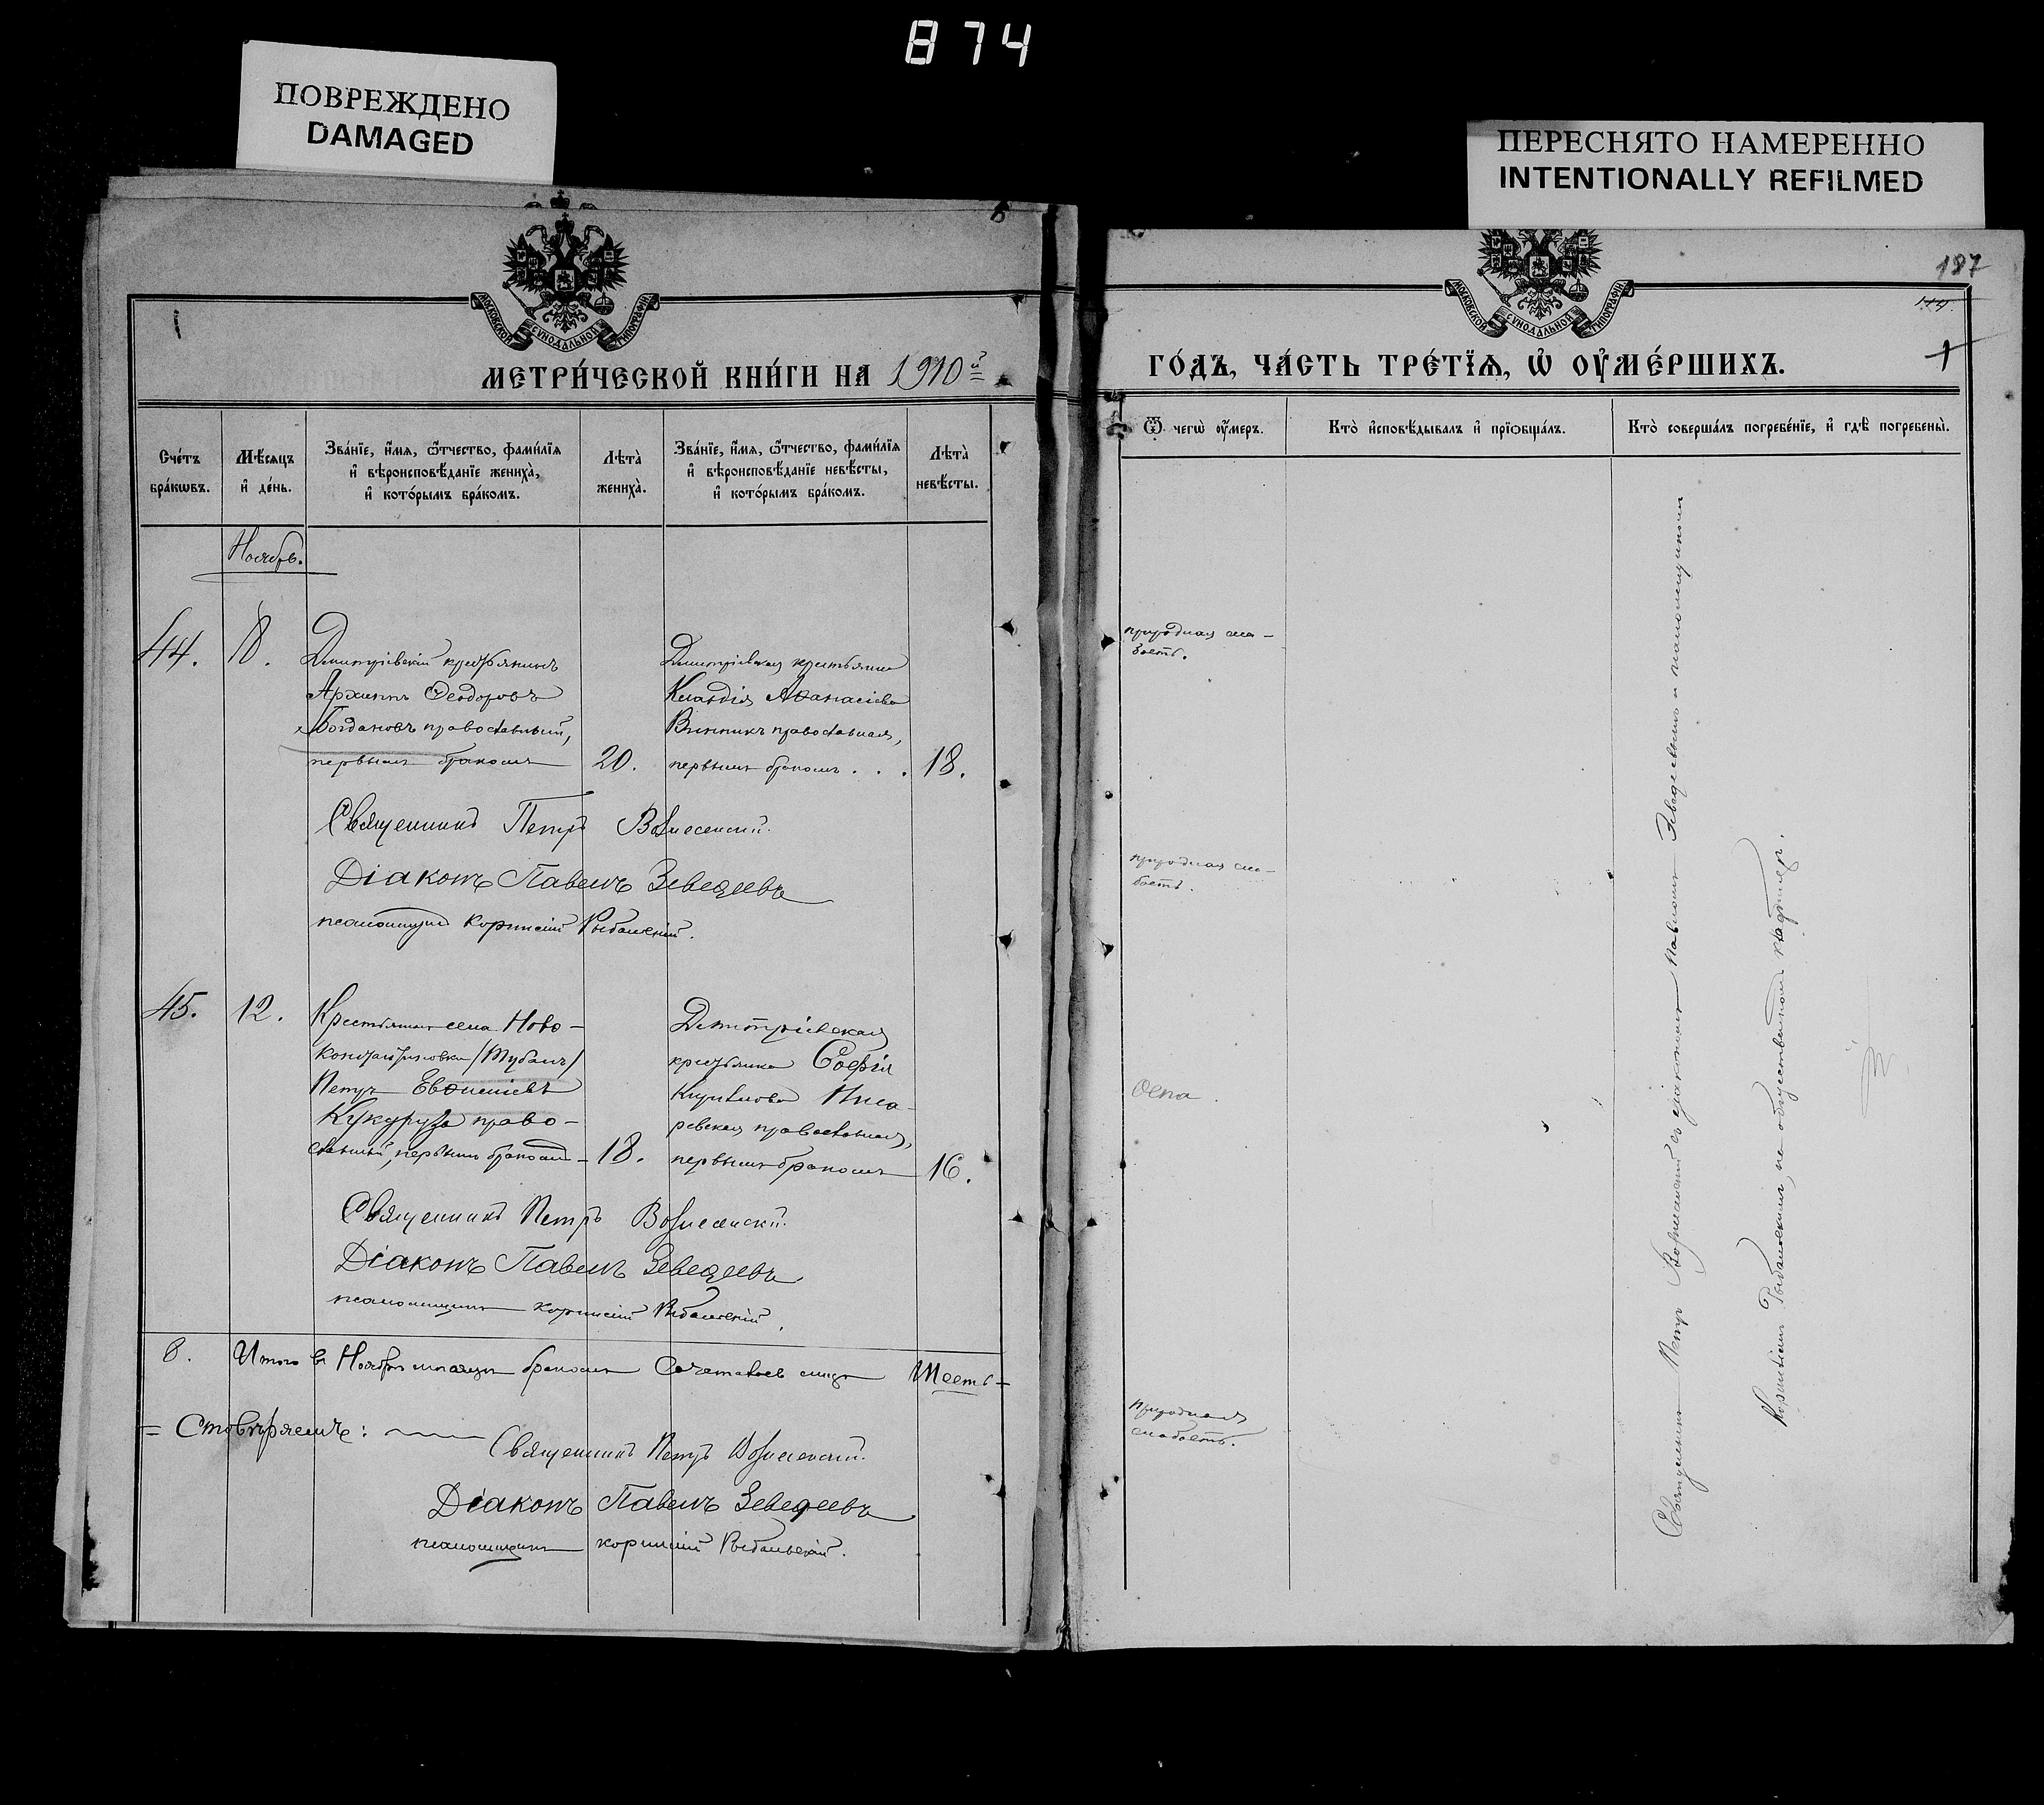 874
ПОВРЕЖДЕНО
DAMAGED
ПЕРЕСНЯТО НАМЕРЕННО
INTENTIONALLY REFILMED
МОСКОВСКОЙ СѴНОДАЛЬНОЙ ТИПОГРАФІИ
МЕТРИ́ЧЕСКОЙ КНИ́ГИ НА 1910й
Сче́тъ бра́кѡвъ.
Мѣ́сяцъ и҆ де́нь.
Зва́нїе, и҆́мя, ѻ҆́тчество, фами́лїя
и҆ вѣроисповѣ́данїе жениха̀,
и҆ кото́рымъ бра́комъ.
Лѣта̀ жениха̀.
Зва́нїе, и҆́мя, ѻ҆́тчество, фами́лїя
и҆ вѣроисповѣ́данїе невѣ́сты,
и҆ кото́рымъ бра́комъ.
Лѣта̀ невѣ́сты.
Ноябрь.
44. 8.
Димитріевскій крестьянинъ
Архиппъ Ѳеодоровъ
Богдановъ православный,
первымъ бракомъ 20.
Димитріевская крестьянка
Клавдія Аѳанасіева
Винникъ православная,
первымъ бракомъ . . . 18.
Священникъ Петръ Вознесенскій.
Діаконъ Павелъ Зеведеевъ
псаломщикъ Корнилій Рыбальскій.
45. 12.
Крестьянинъ села Ново-
константиновки /Тубалъ/
Петръ Евѳиміевъ
Кукуруза право-
славный, первымъ бракомъ - 18.
Димитріевская
крестьянка Софія
Кириллова Писа-
ревская православная,
первымъ бракомъ 16.
Священникъ Петръ Вознесенскій.
Діаконъ Павелъ Зеведеевъ
псаломщикъ Корнилій Рыбальскій.
8. Итого въ Ноябрѣ мѣсяцѣ бракомъ сочеталось лицъ Шесть
Священникъ Петръ Вознесенскій.
Діаконъ Павелъ Зеведеевъ
псаломщикъ Корнилій Рыбальскій.
187
МОСКОВСКОЙ СѴНОДАЛЬНОЙ ТИПОГРАФІИ
ГО́ДЪ, ЧА́СТЬ ТРЕ́ТЇЯ, Ѡ҆ ОУ҆МЕ́РШИХЪ.
Ѿ чегѡ̀ оу҆́меръ.
Кто̀ и҆сповѣ́дывалъ и҆ прїѻбща́лъ.
Кто̀ соверша́лъ погребе́нїе, и҆ гдѣ̀ погребены̀.
природная сла-
бость.
природная сла-
бость.
Оспа.
природная
слабость.
Священникъ Петръ Вознесенскій съ діакономъ Павломъ Зеведеевымъ и псаломщикомъ
Корниліемъ Рыбальскимъ, на общественномъ кладбищѣ.